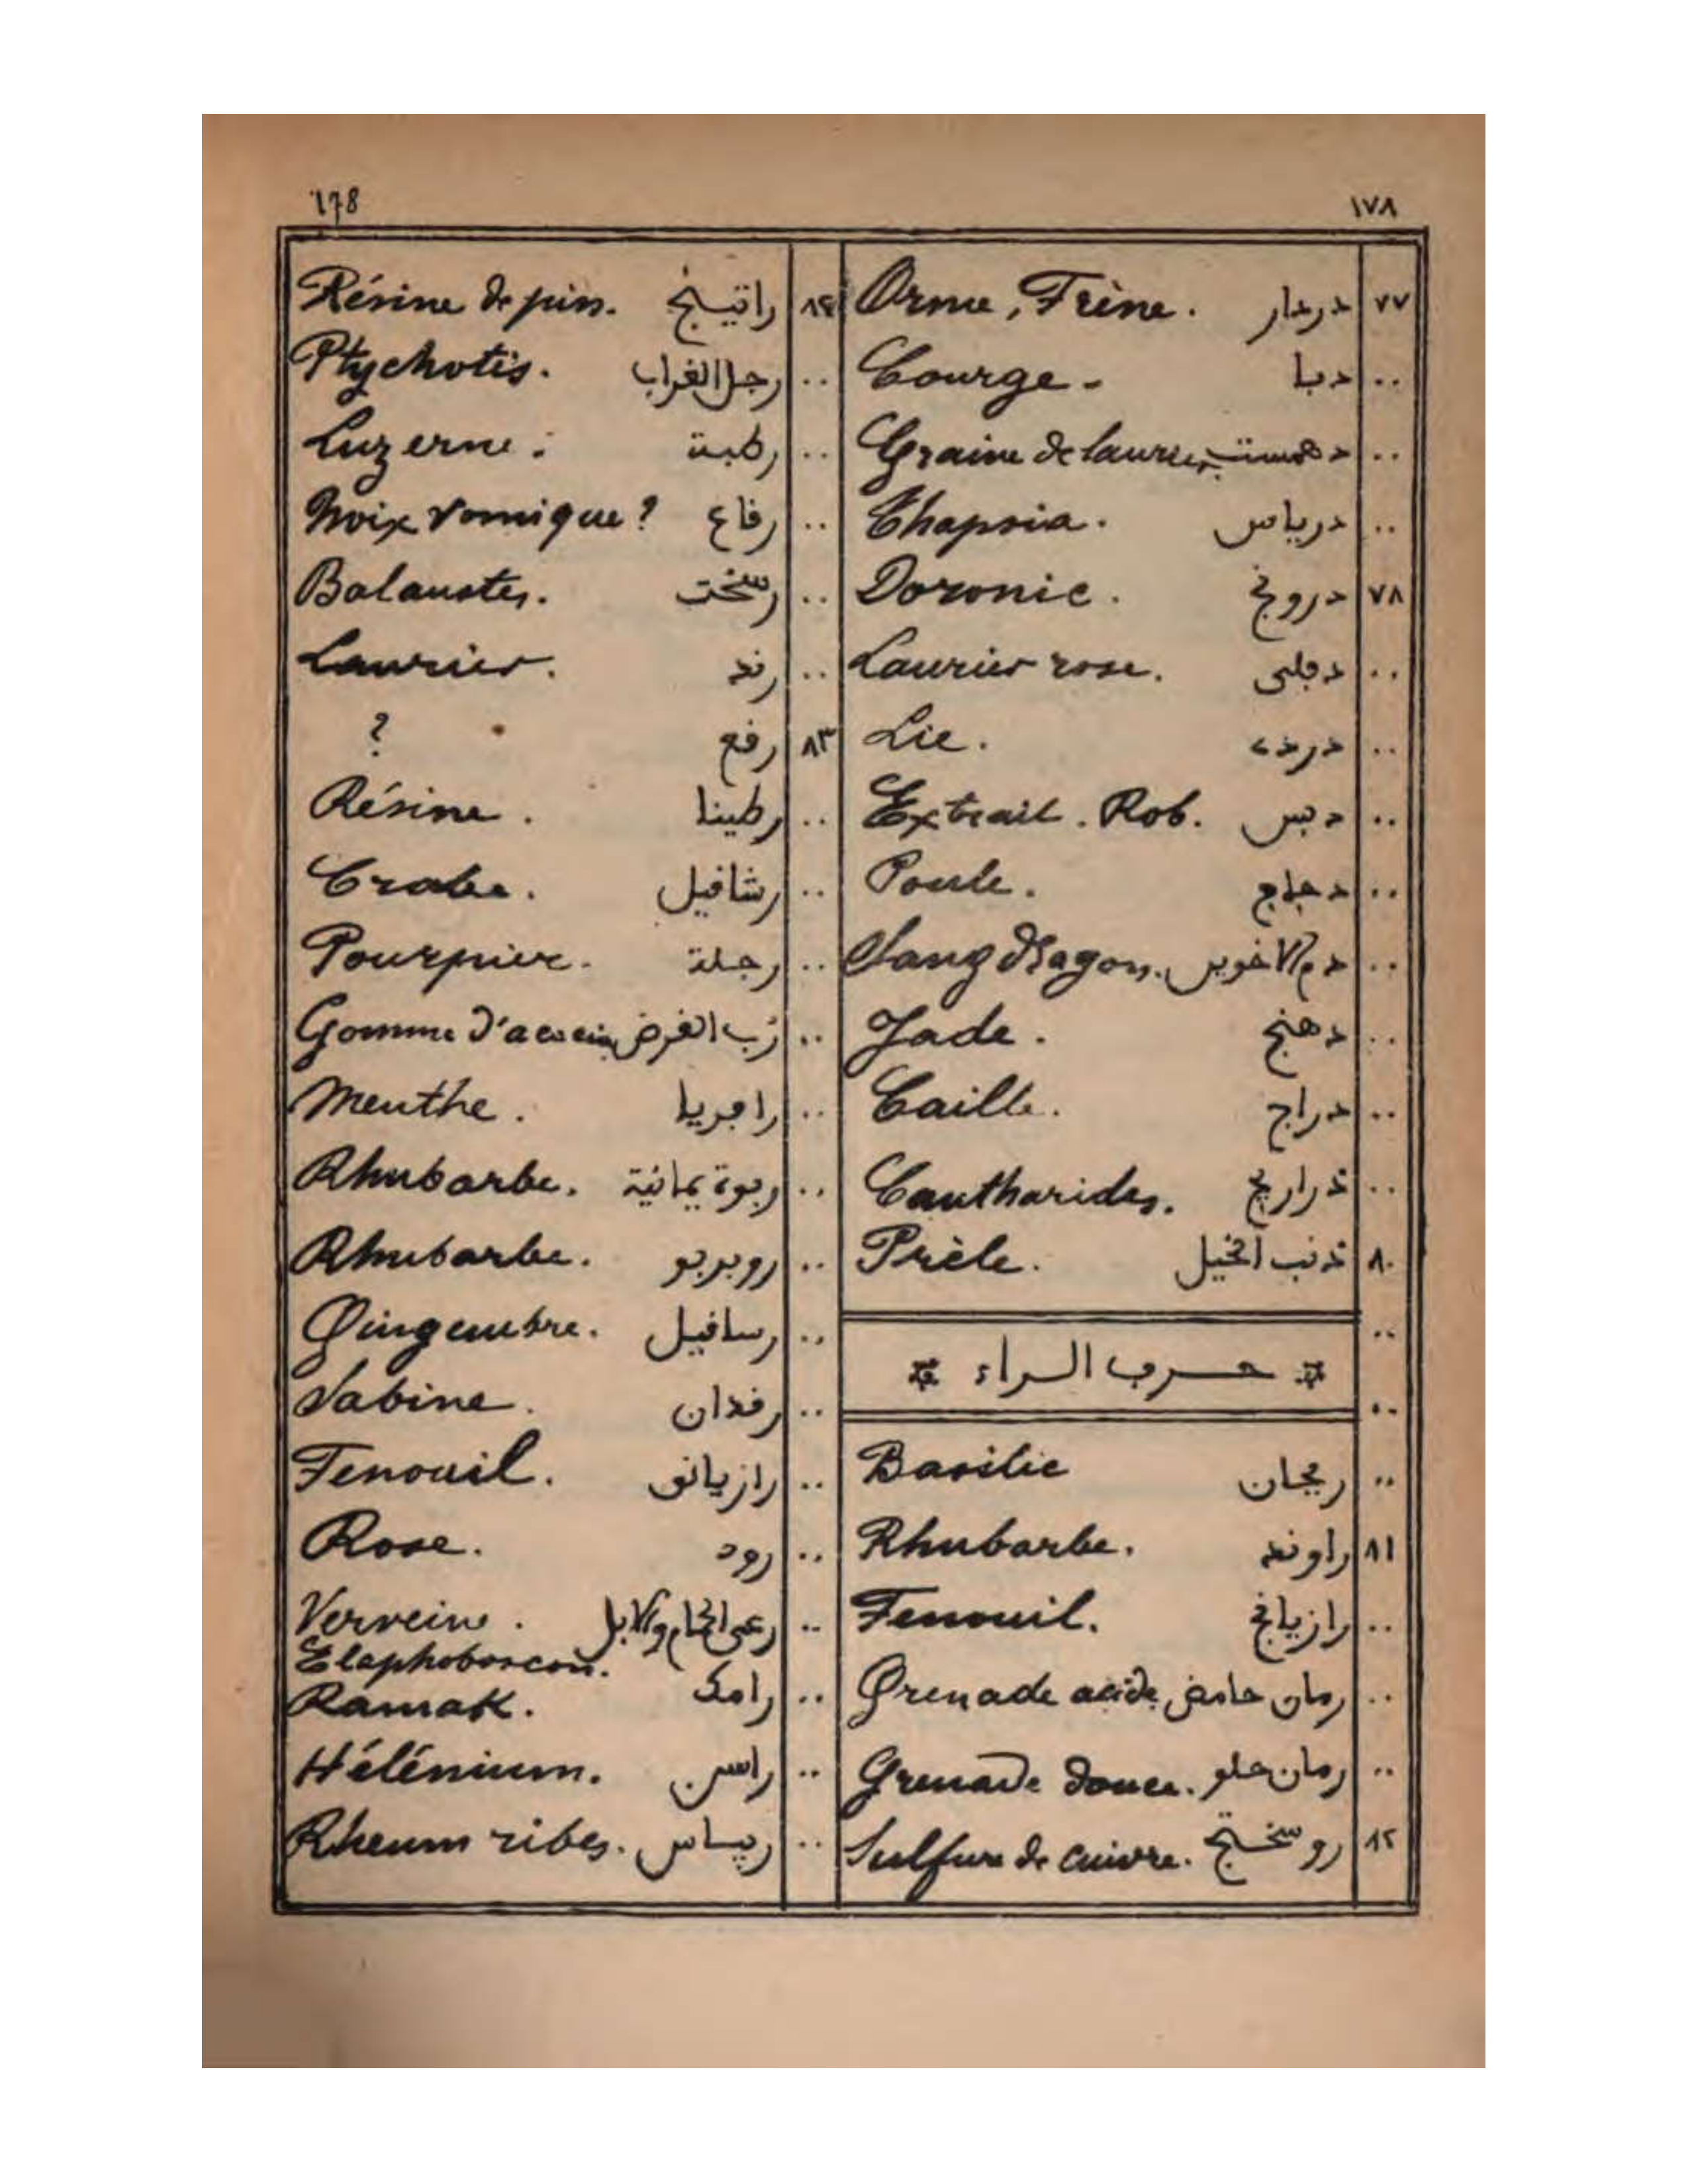 178 ١٧٨
٧٧ دردار Orme, Frêne.
.. دبا Courge.
.. دهمست Graine de laurier
.. درياس Thapsia.
٧٨ درونج Doronic.
.. دفلى Laurier rose.
.. Lie.
.. دبس Extrait. Rob.
.. دجاج Poule.
.. دم الاخوين Sang dragon.
.. دهنج Jade.
.. دراج Caille.
.. ذراريح Cantharides.
٨٠ ذنب الخيل Prèle.
..
* حرف الراء *
..
.. ريحان Basilic
٨١ راوند Rhubarbe.
.. رازيانج Fenouil.
.. رمان حامض Grenade acide
.. رمان حلو Grenade douce.
٨٢ روسختج Sulfure de cuivre.
٨٤ راتينج Résine de pin.
.. رجل الغراب Ptychotis.
.. رطبة Luzerne.
.. رقاع Noix vomique?
.. Balaustes.
.. رند Laurier.
٨٣ رفع ?
.. رطينا Résine.
.. رشافيل Crabe.
.. رجلة Pourpier.
.. رُب القرض Gomme d'acacia
.. Menthe.
.. ربوة يمانية Rhubarbe.
.. روبربو Rhubarbe.
.. رسافيل Gingembre.
.. رفدان Sabine.
.. رازيانق Fenouil.
.. رود Rose.
.. رعي الحمام والابل Verveine.
Elaphoboscon.
.. رامك Ramak.
.. راسن Hélénium.
.. ريباس Rheum ribes.